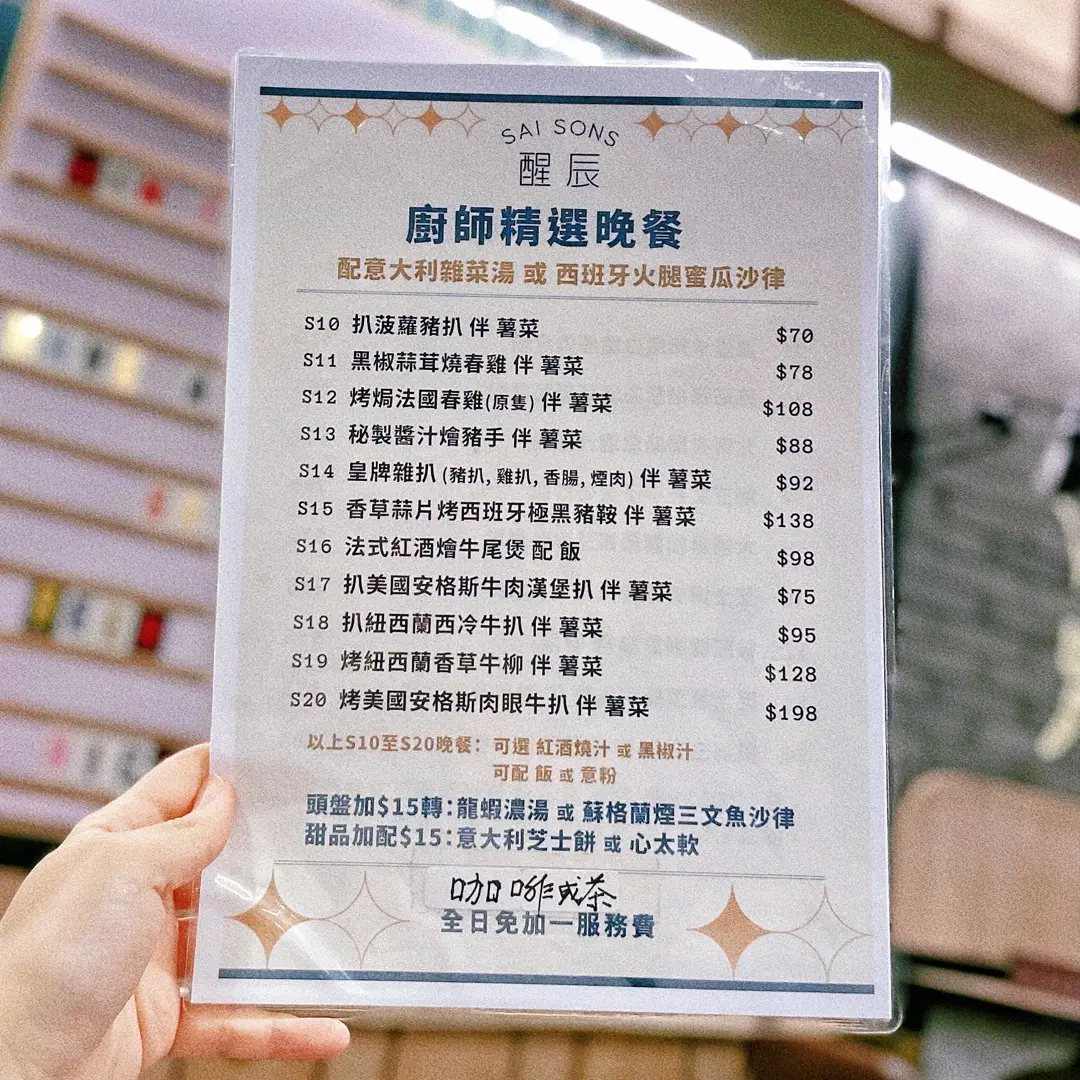 SAI SONS
醒辰
廚師精選晚餐
配意大利雜菜湯 或 西班牙火腿蜜瓜沙律
S10 扒菠蘿豬扒 伴 薯菜 $70
S11 黑椒蒜茸燒春雞 伴 薯菜 $78
S12 烤焗法國春雞(原隻) 伴 薯菜 $108
S13 秘製醬汁燴豬手 伴 薯菜 $88
S14 皇牌雜扒 (豬扒, 雞扒, 香腸, 煙肉) 伴 薯菜 $92
S15 香草蒜片烤西班牙極黑豬鞍 伴 薯菜 $138
S16 法式紅酒燴牛尾煲 配 飯 $98
S17 扒美國安格斯牛肉漢堡扒 伴 薯菜 $75
S18 扒紐西蘭西冷牛扒 伴 薯菜 $95
S19 烤紐西蘭香草牛柳 伴 薯菜 $128
S20 烤美國安格斯肉眼牛扒 伴 薯菜 $198
以上S10至S20晚餐: 可選 紅酒燒汁 或 黑椒汁
可配 飯 或 意粉
頭盤加$15轉:龍蝦濃湯 或 蘇格蘭煙三文魚沙律
甜品加配$15:意大利芝士餅 或 心太軟
咖啡或茶
全日免加一服務費